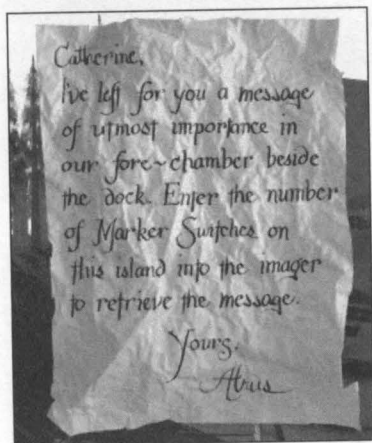 Catherine,
I've left for you a message
of utmost importance in
our fore~chamber beside
the dock. Enter the number
of Marker Switches on
this island into the imager
to retrieve the message.
Yours,
Atrus